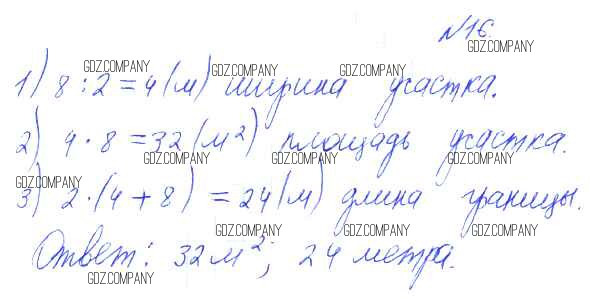 №16.
1) 8 : 2 = 4 (м) ширина участка.
2) 4 · 8 = 32 (м²) площадь участка.
3) 2 · (4 + 8) = 24 (м) длина границы.
Ответ: 32 м²; 24 метра.
GDZ.COMPANY
GDZ.COMPANY GDZ.COMPANY GDZ.COMPANY
GDZ.COMPANY GDZ.COMPANY GDZ.COMPANY
GDZ.COMPANY GDZ.COMPANY GDZ.COMPANY
GDZ.COMPANY
GDZ.COMPANY GDZ.COMPANY GDZ.COMPANY
GDZ.COMPANY